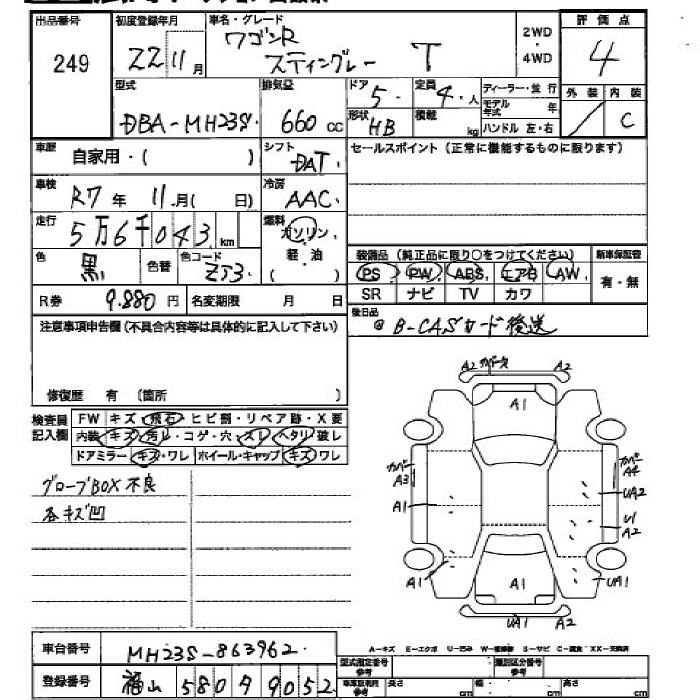 出品番号 初度登録年月 車名・グレード 評価点
249 22 11月 ワゴンR スティングレー T 2WD・4WD 4
型式 排気量 ドア 定員 ディーラー・並行 外装 内装
DBA-MH23S 660cc 5 4人 モデル年式 年 C
形状 HB 積載 kg ハンドル 左・右
車歴 自家用・( ) シフト DAT セールスポイント (正常に機能するものに限ります)
車検 R7年 11月( 日) 冷房 AAC
走行 5万6千043km 燃料 ガソリン 軽油 ( )
色 黒 色替 色コード ZJ3
装備品 (純正品に限り○をつけてください) 新車保証書
PS PW ABS エアB AW 有・無
SR ナビ TV カワ
R券 9.880円 名変期限 月 日
後日品
@ B-CASカード後送
注意事項申告欄 (不具合内容等は具体的に記入して下さい)
修復歴 有 (箇所 )
検査員記入欄 FW キズ・飛石・ヒビ割・リペア跡・X要
内装 キズ・汚レ・コゲ・穴・スレ・ヘタリ・破レ
ドアミラー キズ・ワレ ホイール・キャップ キズ・ワレ
グローブBOX不良
各キズ凹
A2 カバー A2
A1
カバー A3 カバー A4
A1 UA2
U1
A2
A1 A1 UA1
UA1 A2
A-キズ E-エクボ U-凹ミ W-補修跡 S-サビ C-腐食 XX-交換済
車台番号 MH23S-863962
型式指定番号 類別区分番号
登録番号 福山 580 9052
長さ cm 幅 cm 高さ cm